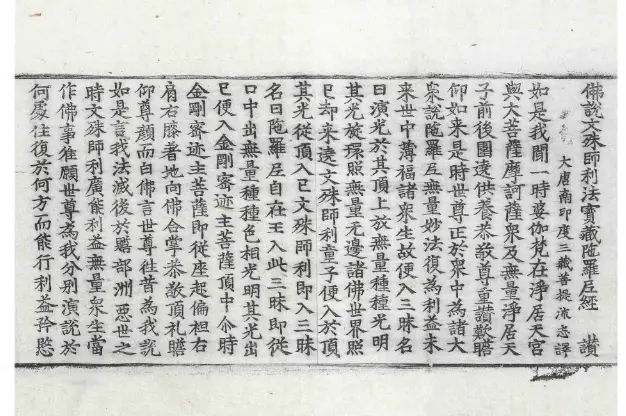 佛說文殊師利法寶藏陁羅尼經 讃
大唐南印度三藏菩提流志譯
如是我聞一時婆伽梵在淨居天宮
與大菩薩摩訶薩衆及無量淨居天
子前後圍遶供養恭敬尊重讃歎瞻
仰如來是時世尊正於衆中為諸大
衆說陁羅尼無量妙法復為利益未
来世中薄福諸衆生故便入三昧名
曰演光於其頂上放無量種種光明
其光旋環照無量无邊諸佛世界照
已却来遶文殊師利童子便入於頂
其光從頂入已文殊師利即入三昧
名曰陁羅尼自在王入此三昧即從
口中出無量種種色相光明其光出
已便入金剛密迹主菩薩頂中尒時
金剛密迹主菩薩即從座起偏袒右
肩右膝著地向佛合掌恭敬頂礼瞻
仰尊顔而白佛言世尊往昔為我說
如是言我法滅後於贍部洲惡世之
時文殊師利廣能利益無量衆生當
作佛事惟願世尊為我分別演說於
何處住復於何方而能行利益矜愍